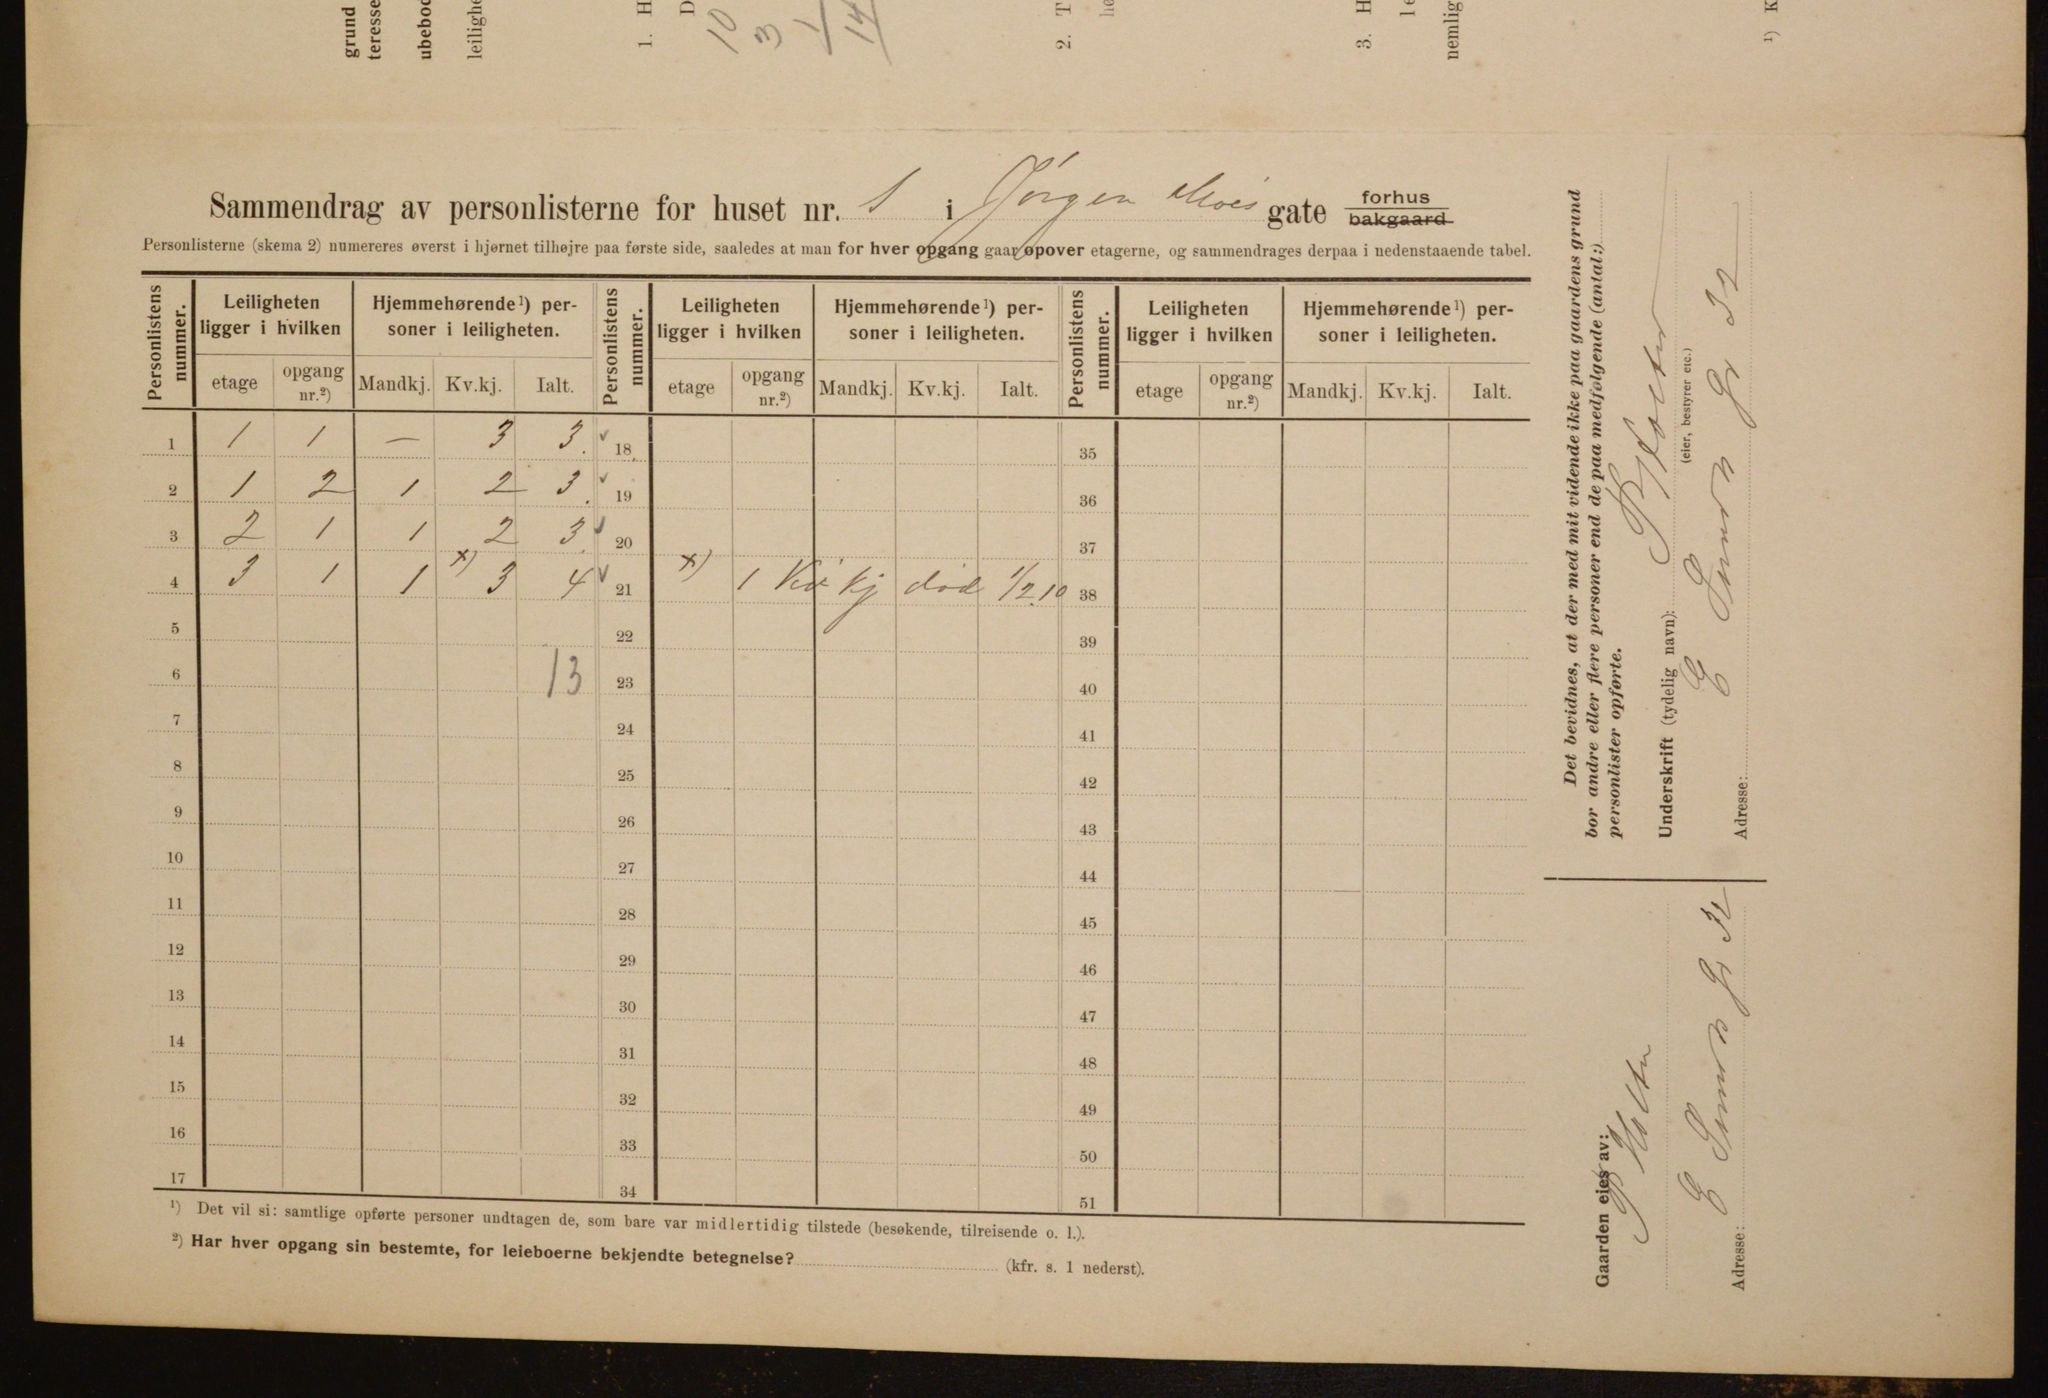 grund
teresse
ubeboe
leilighe
1. H
D
10
3
1
14
2. T
hø
3. H
le
nemlig
¹) K
Sammendrag av personlisterne for huset nr. 1 i Jørgen Moes gate forhus
bakgaard
Personlisterne (skema 2) numereres øverst i hjørnet tilhøjre paa første side, saaledes at man for hver opgang gaar opover etagerne, og sammendrages derpaa i nedenstaaende tabel.
Personlistens nummer. Leiligheten ligger i hvilken Hjemmehørende¹) personer i leiligheten. Personlistens nummer. Leiligheten ligger i hvilken Hjemmehørende¹) personer i leiligheten. Personlistens nummer. Leiligheten ligger i hvilken Hjemmehørende¹) personer i leiligheten.
etage opgang nr.²) Mandkj. Kv.kj. Ialt. etage opgang nr.²) Mandkj. Kv.kj. Ialt. etage opgang nr.²) Mandkj. Kv.kj. Ialt.
1 1 1 — 3 3. ✓ 18 35
2 1 2 1 2 3. ✓ 19 36
3 2 1 1 2 3. ✓ 20 37
4 3 1 1 x) 3 4 ✓ 21 x) 1 Kv kj død 1/2.10 38
5 22 39
6 13 23 40
7 24 41
8 25 42
9 26 43
10 27 44
11 28 45
12 29 46
13 30 47
14 31 48
15 32 49
16 33 50
17 34 51
¹) Det vil si: samtlige opførte personer undtagen de, som bare var midlertidig tilstede (besøkende, tilreisende o. l.).
²) Har hver opgang sin bestemte, for leieboerne bekjendte betegnelse? (kfr. s. 1 nederst).
Det bevidnes, at der med mit vidende ikke paa gaardens grund
bor andre eller flere personer end de paa medfølgende (antal:)
personlister opførte.
Underskrift (tydelig navn): P Holter
(eier, bestyrer etc.)
Adresse: 32
Gaarden eies av:
P Holter
Adresse: 32